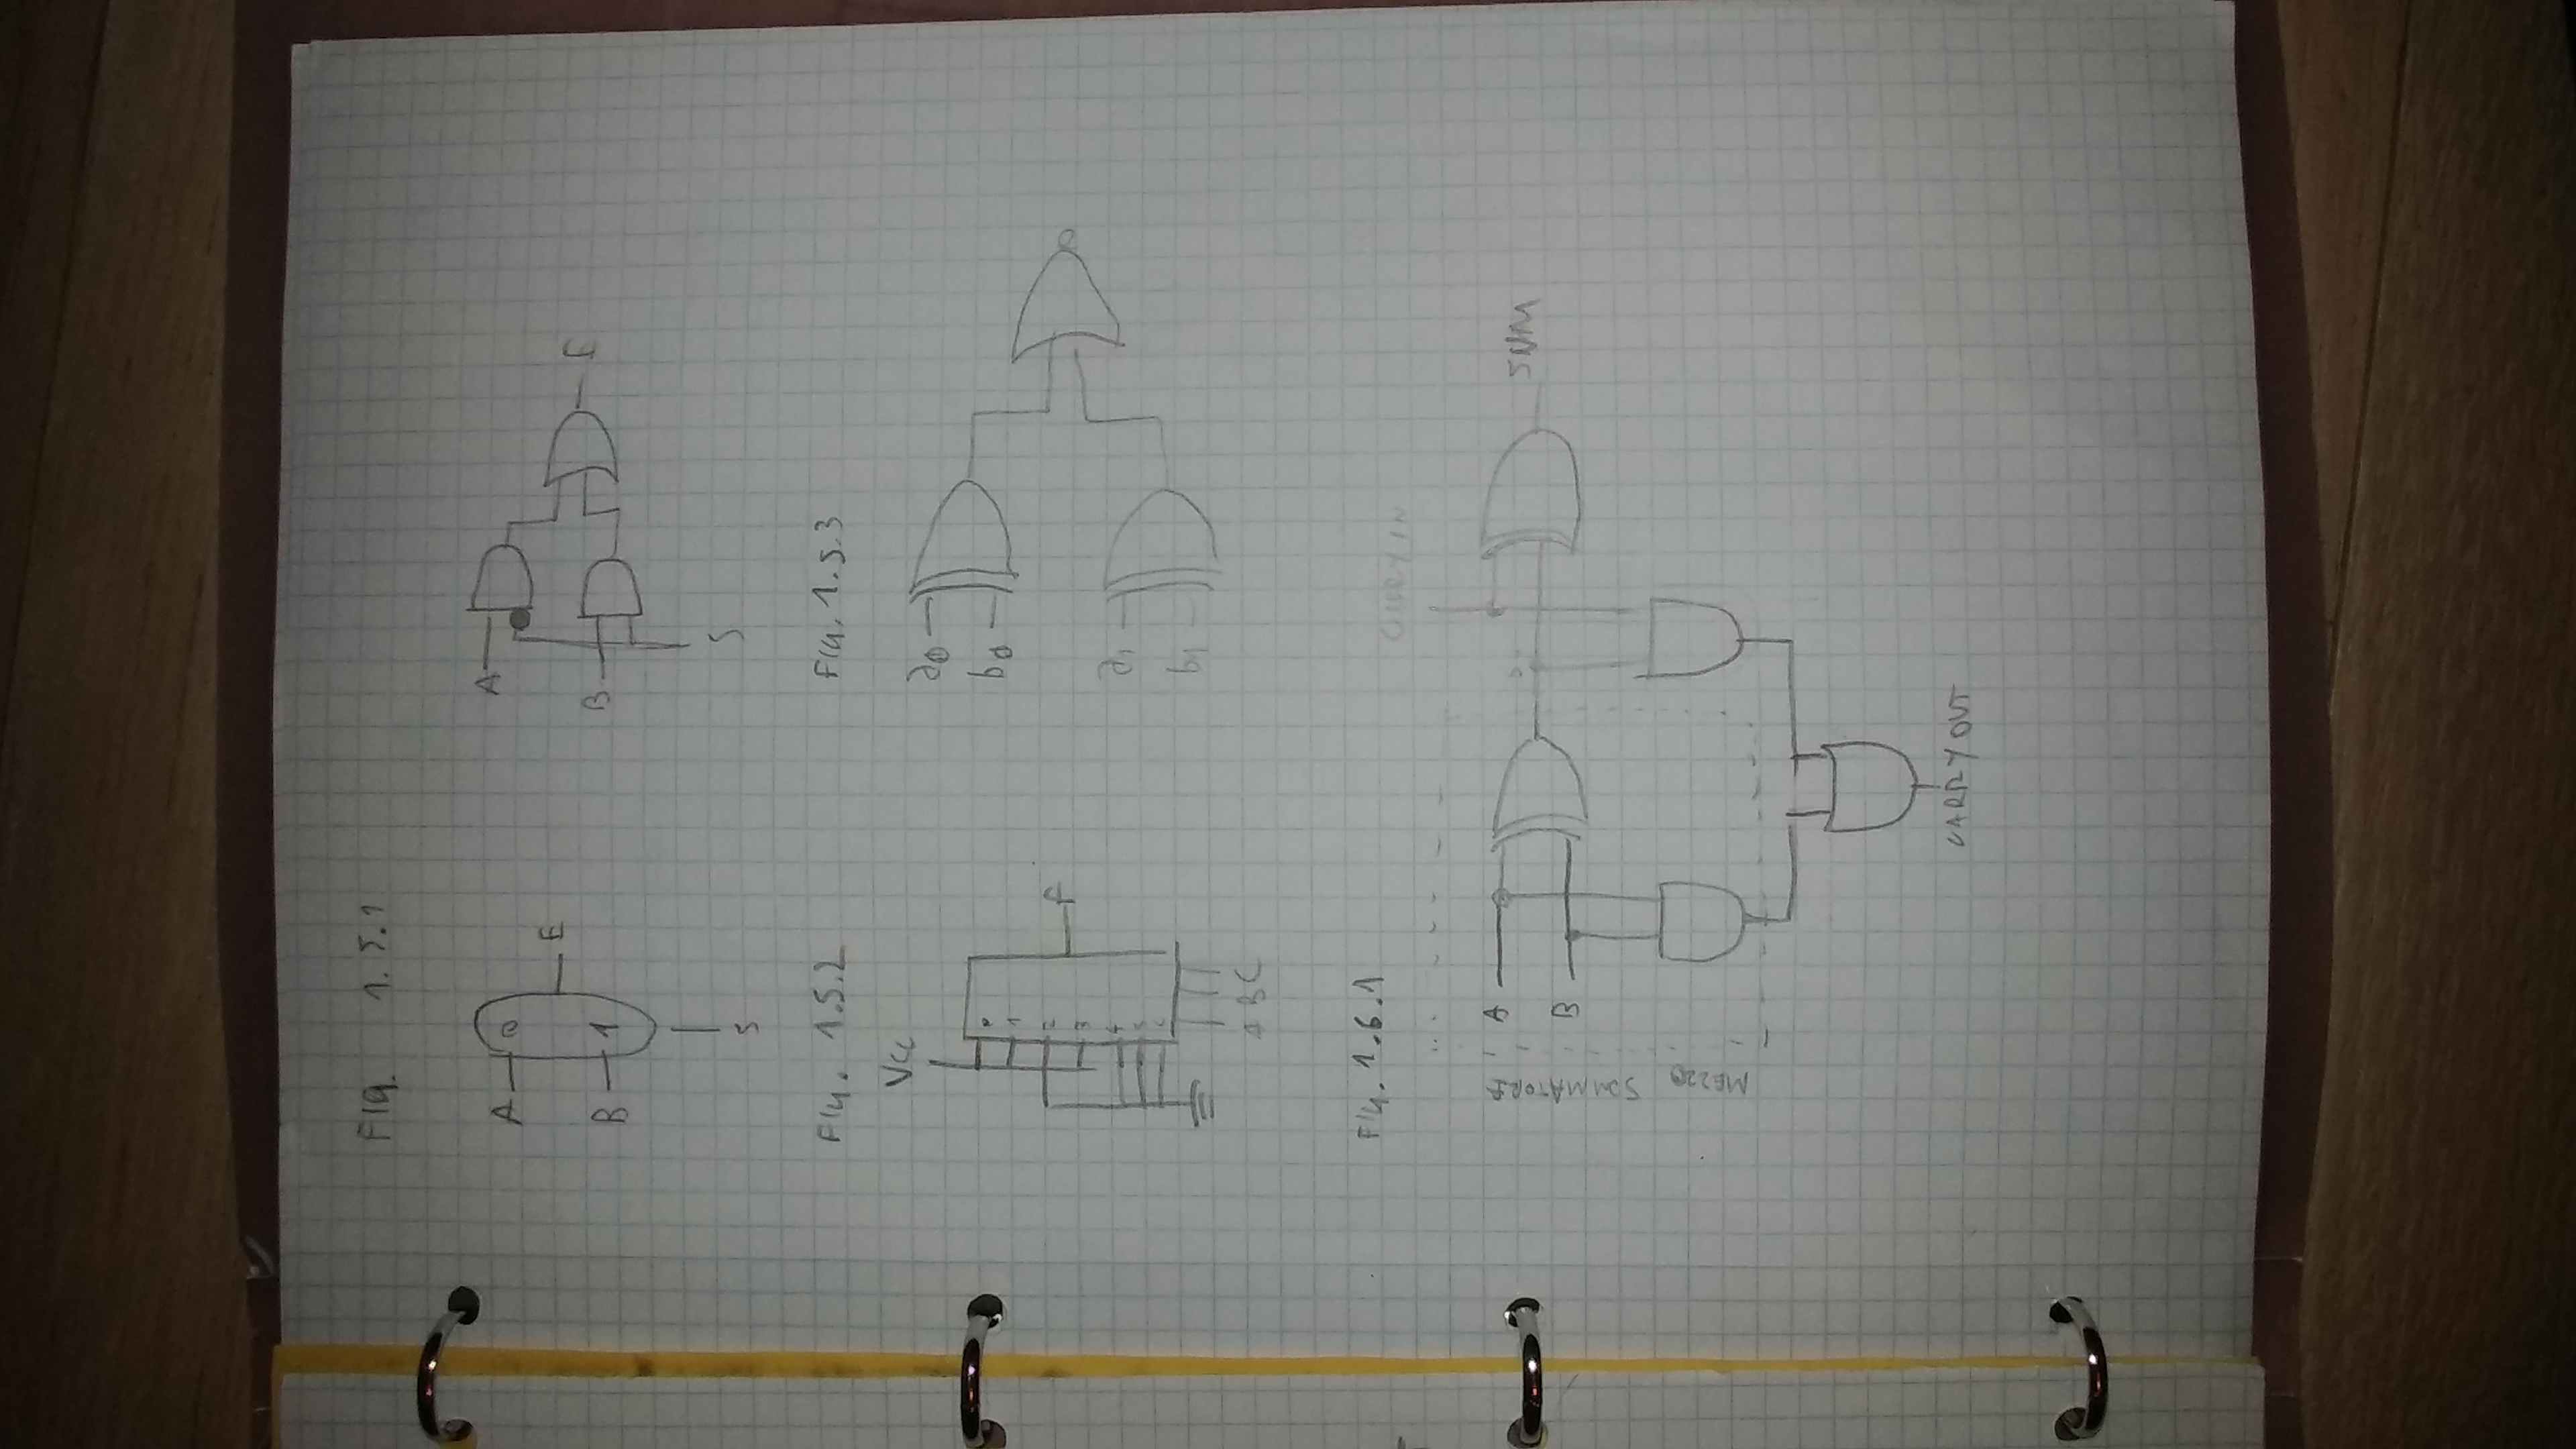 FIG. 1.5.1
A 0
E
B 1
S
A
B
F
S
FIG. 1.5.2
VCC
0
1
2
3
4
5
F
A B C
FIG. 1.5.3
a0
b0
a1
b1
FIG. 1.6.1
CARRY IN
MEZZO SOMMATORE
A
B
SUM
CARRY OUT